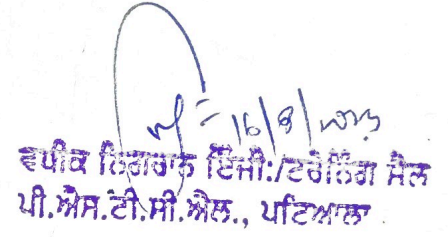 16/8/
ਵਧੀਕ ਨਿਗਰਾਨ ਇੰਜੀ:/ਟਰੇਨਿੰਗ ਸੈਲ
ਪੀ.ਐਸ.ਟੀ.ਸੀ.ਐਲ., ਪਟਿਆਲਾ